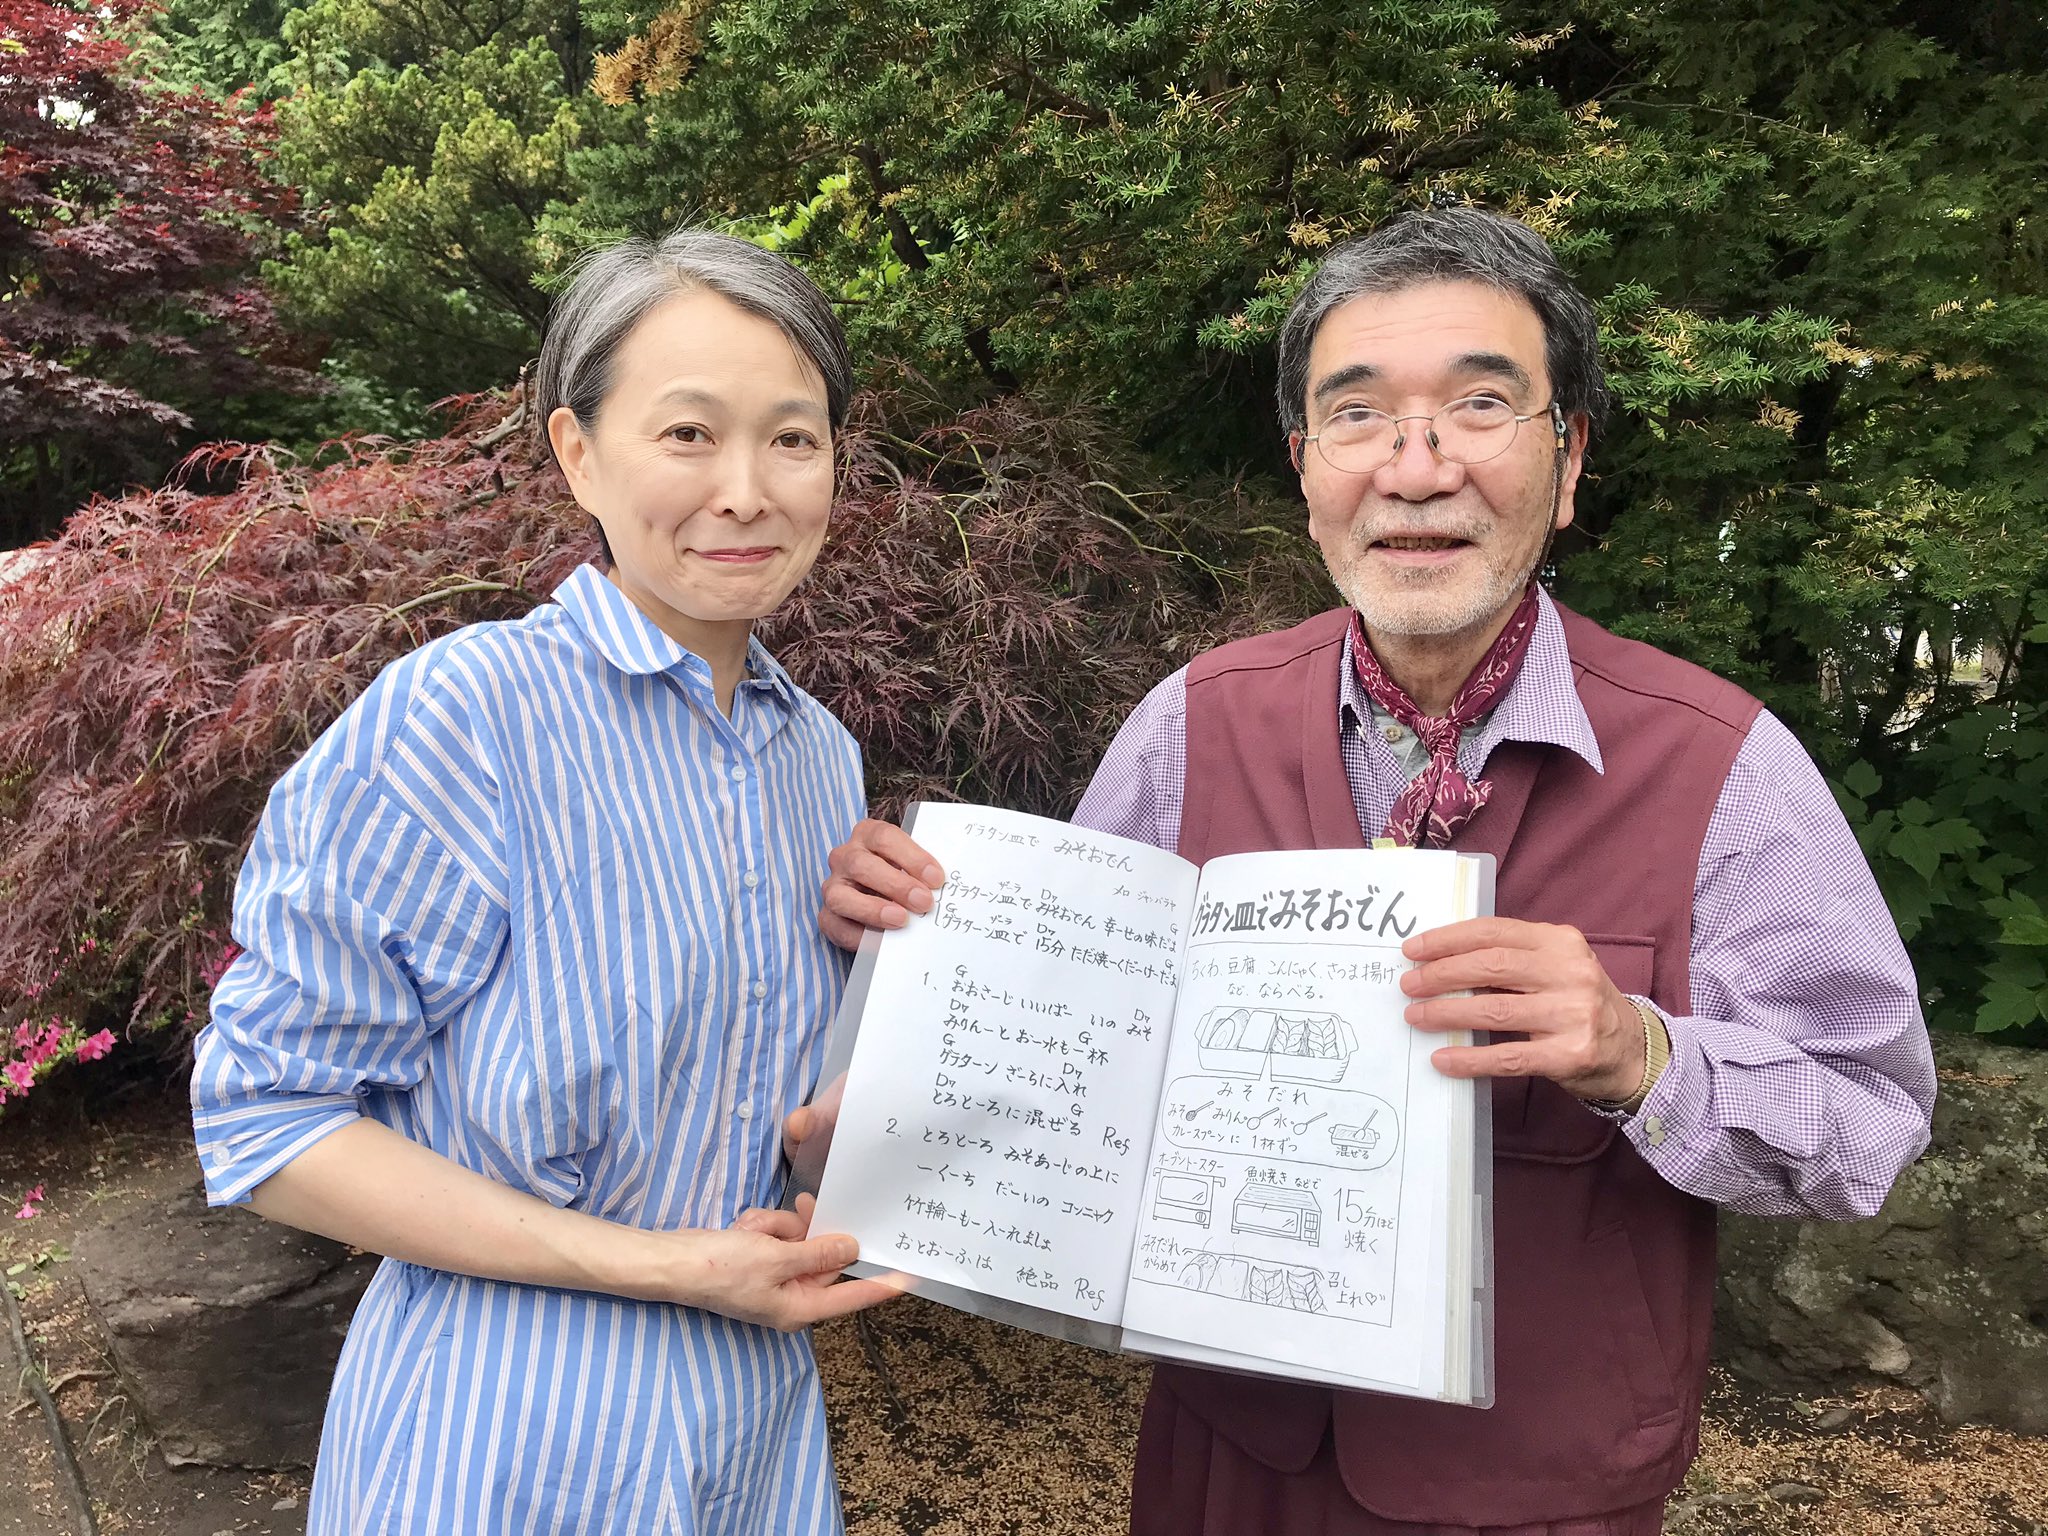 グラタン皿で みそおでん
メロ ジャンバラヤ
G ザーラ D7 G
グラターン皿で みそおでん 幸せの味だよ
G ザーラ D7 G
グラターン皿で 15分 ただ焼ーくだーけーだよ
G D7
1、おおさーじ いいぱー いの みそ
D7 G
みりんーと おー水も一杯
G D7
グラターン ざーらに入れ
D7 G
とろとーろに 混ぜる Ref
2、とろとーろ みそあーじの上に
一くーち だーいの コンニャク
竹輪ーもー入ーれましょ
おとおーふは 絶品 Ref
グラタン皿でみそおでん
ちくわ、豆腐、こんにゃく、さつま揚げ
など、ならべる。
みそだれ
みそ みりん 水
カレースプーンに 1杯ずつ
混ぜる
オーブントースター
魚焼き などで
15分ほど
焼く
みそだれ
からめて
召し
上れ♡